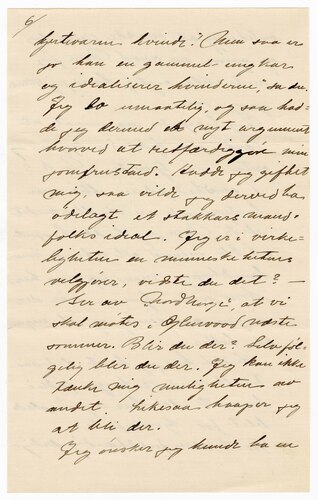 6/
hjertevarm kvinde." Men saa er
jo han en gammel ungkar
og idealiserer kvinderne," sa du.
Jeg lo umaatelig, og saa had-
de jeg dermed et nyt argument
hvorved at retfærdiggjøre min
jomfrustand. Hadde jeg giftet
mig, saa vilde jeg derved ha
ødelagt et stakkars mand-
folks ideal. Jeg er i virke-
ligheten en menneskehetens
velgjører, vidste du det? —
Ser av "Nordnorge", at vi
skal møtes i Glenwood næste
sommer. Blir du der? Selvføl-
gelig blir du der. Jeg kan ikke
tænke mig muligheten av
andet. Likesaa haaper jeg
at bli der.
Jeg ønsker jeg kunde ha en